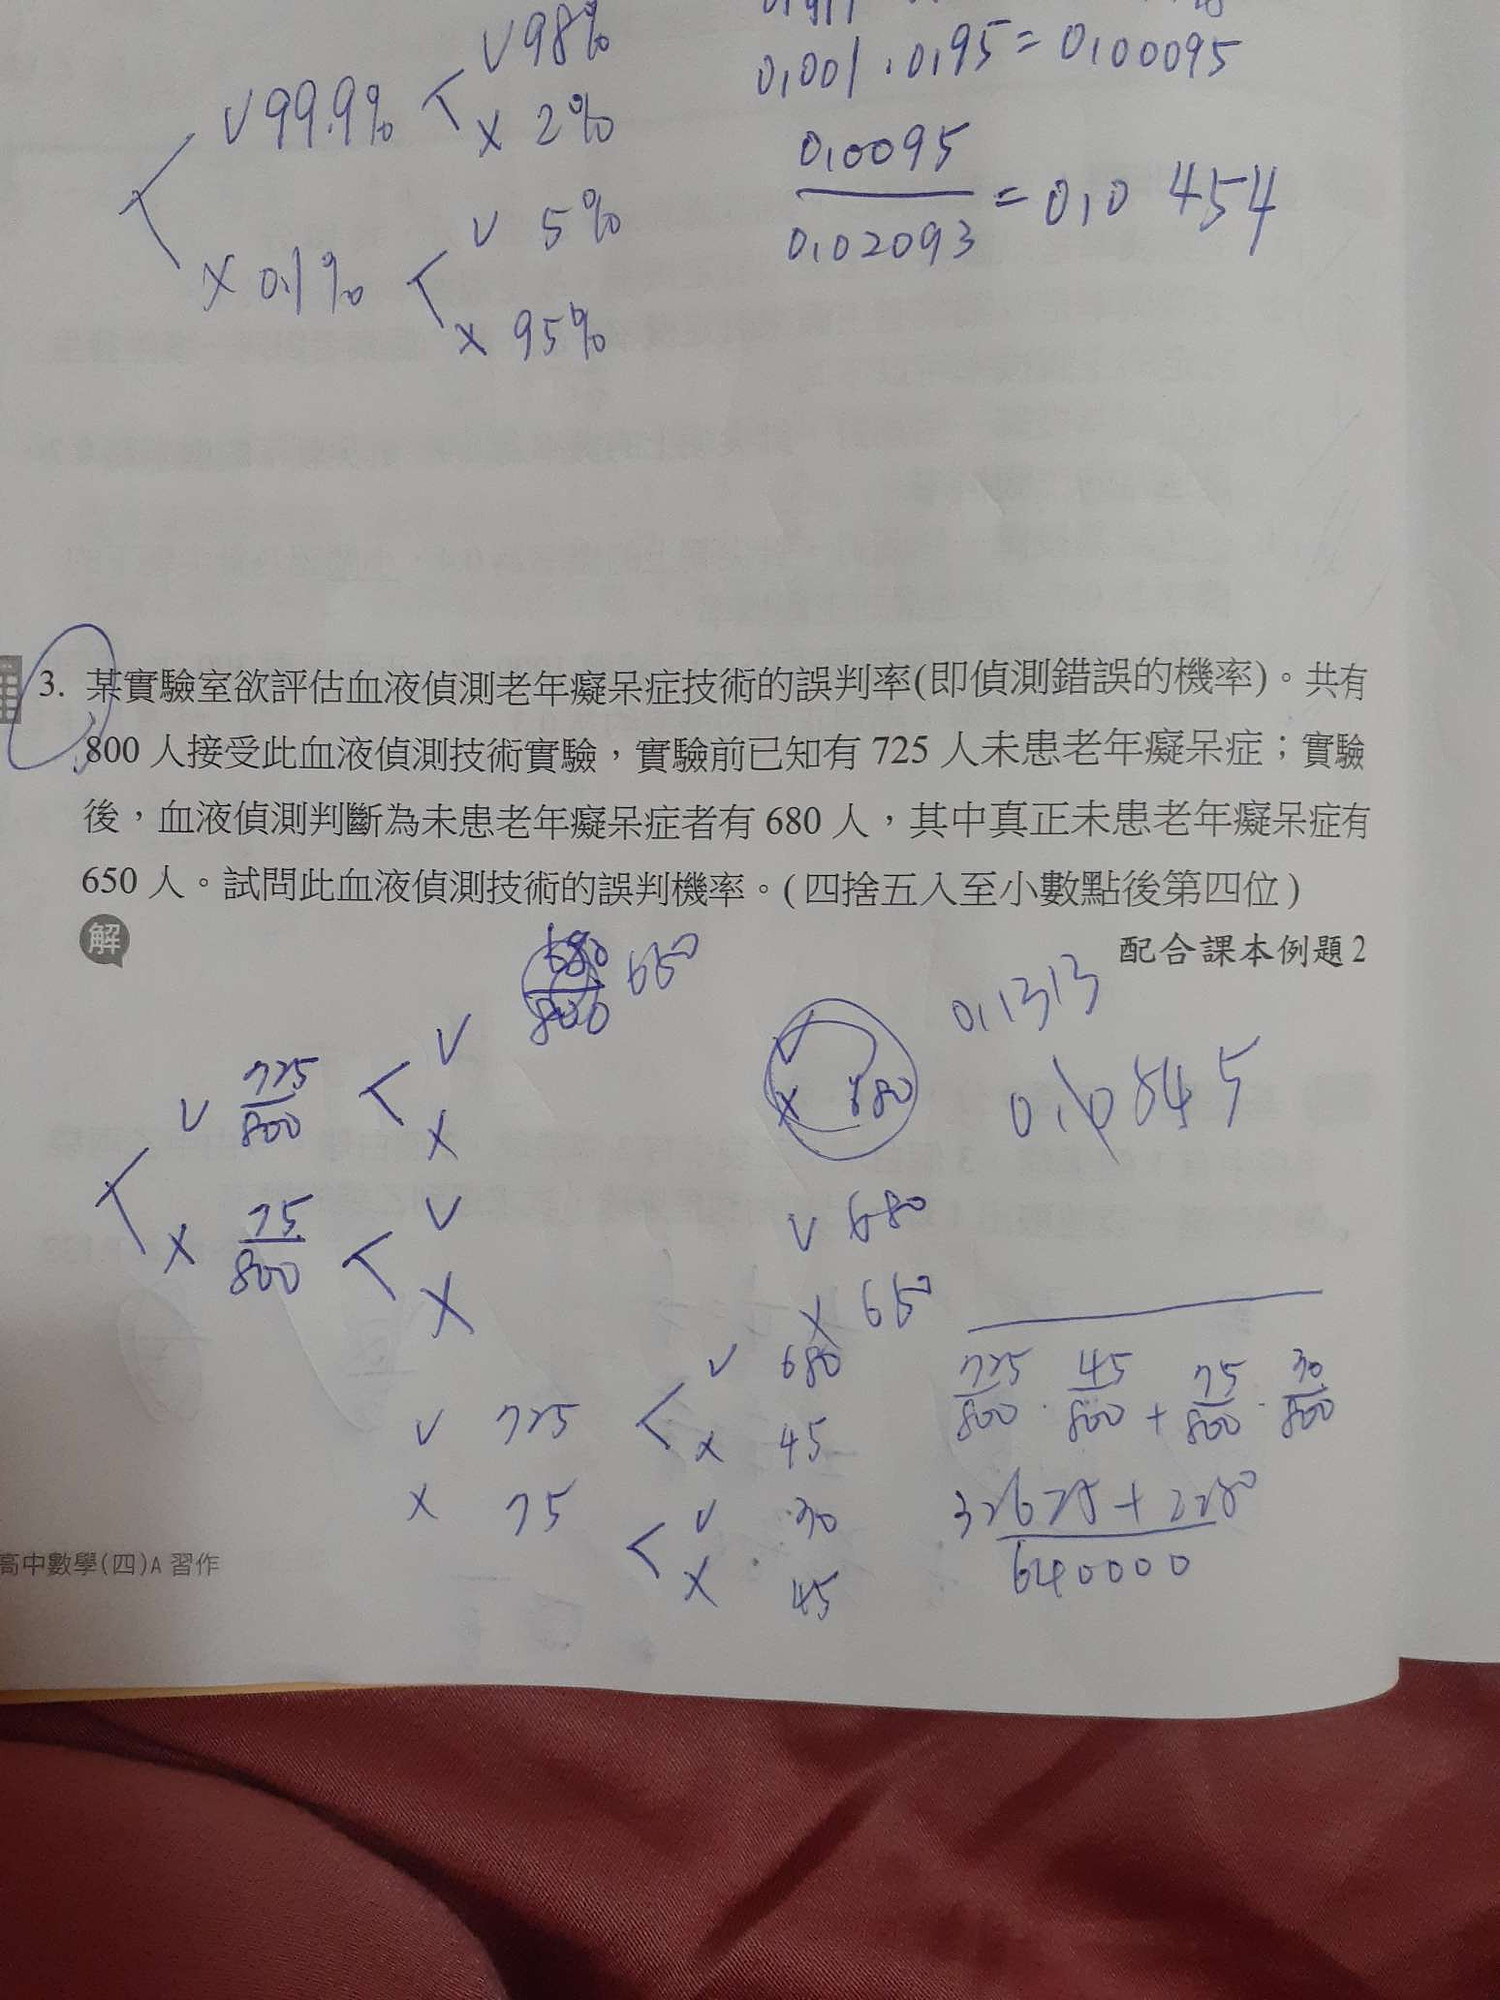 V 98%
V 99.9%
X 2%
V 5%
X 0.1%
X 95%
0,001 . 0,95 = 0,00095
0,0095
0,02093
= 0,0 454
3. 某實驗室欲評估血液偵測老年癡呆症技術的誤判率(即偵測錯誤的機率)。共有
800 人接受此血液偵測技術實驗，實驗前已知有 725 人未患老年癡呆症；實驗
後，血液偵測判斷為未患老年癡呆症者有 680 人，其中真正未患老年癡呆症有
650 人。試問此血液偵測技術的誤判機率。(四捨五入至小數點後第四位)
解
配合課本例題2
650
V
V 725/800
X
V
X 75/800
X
V
X
0,1313
V 680
X 650
V 680
V 725
X 45
X 75
V 30
X 45
725/800 . 45/800 + 75/800 . 30/800
640000
高中數學(四)A 習作